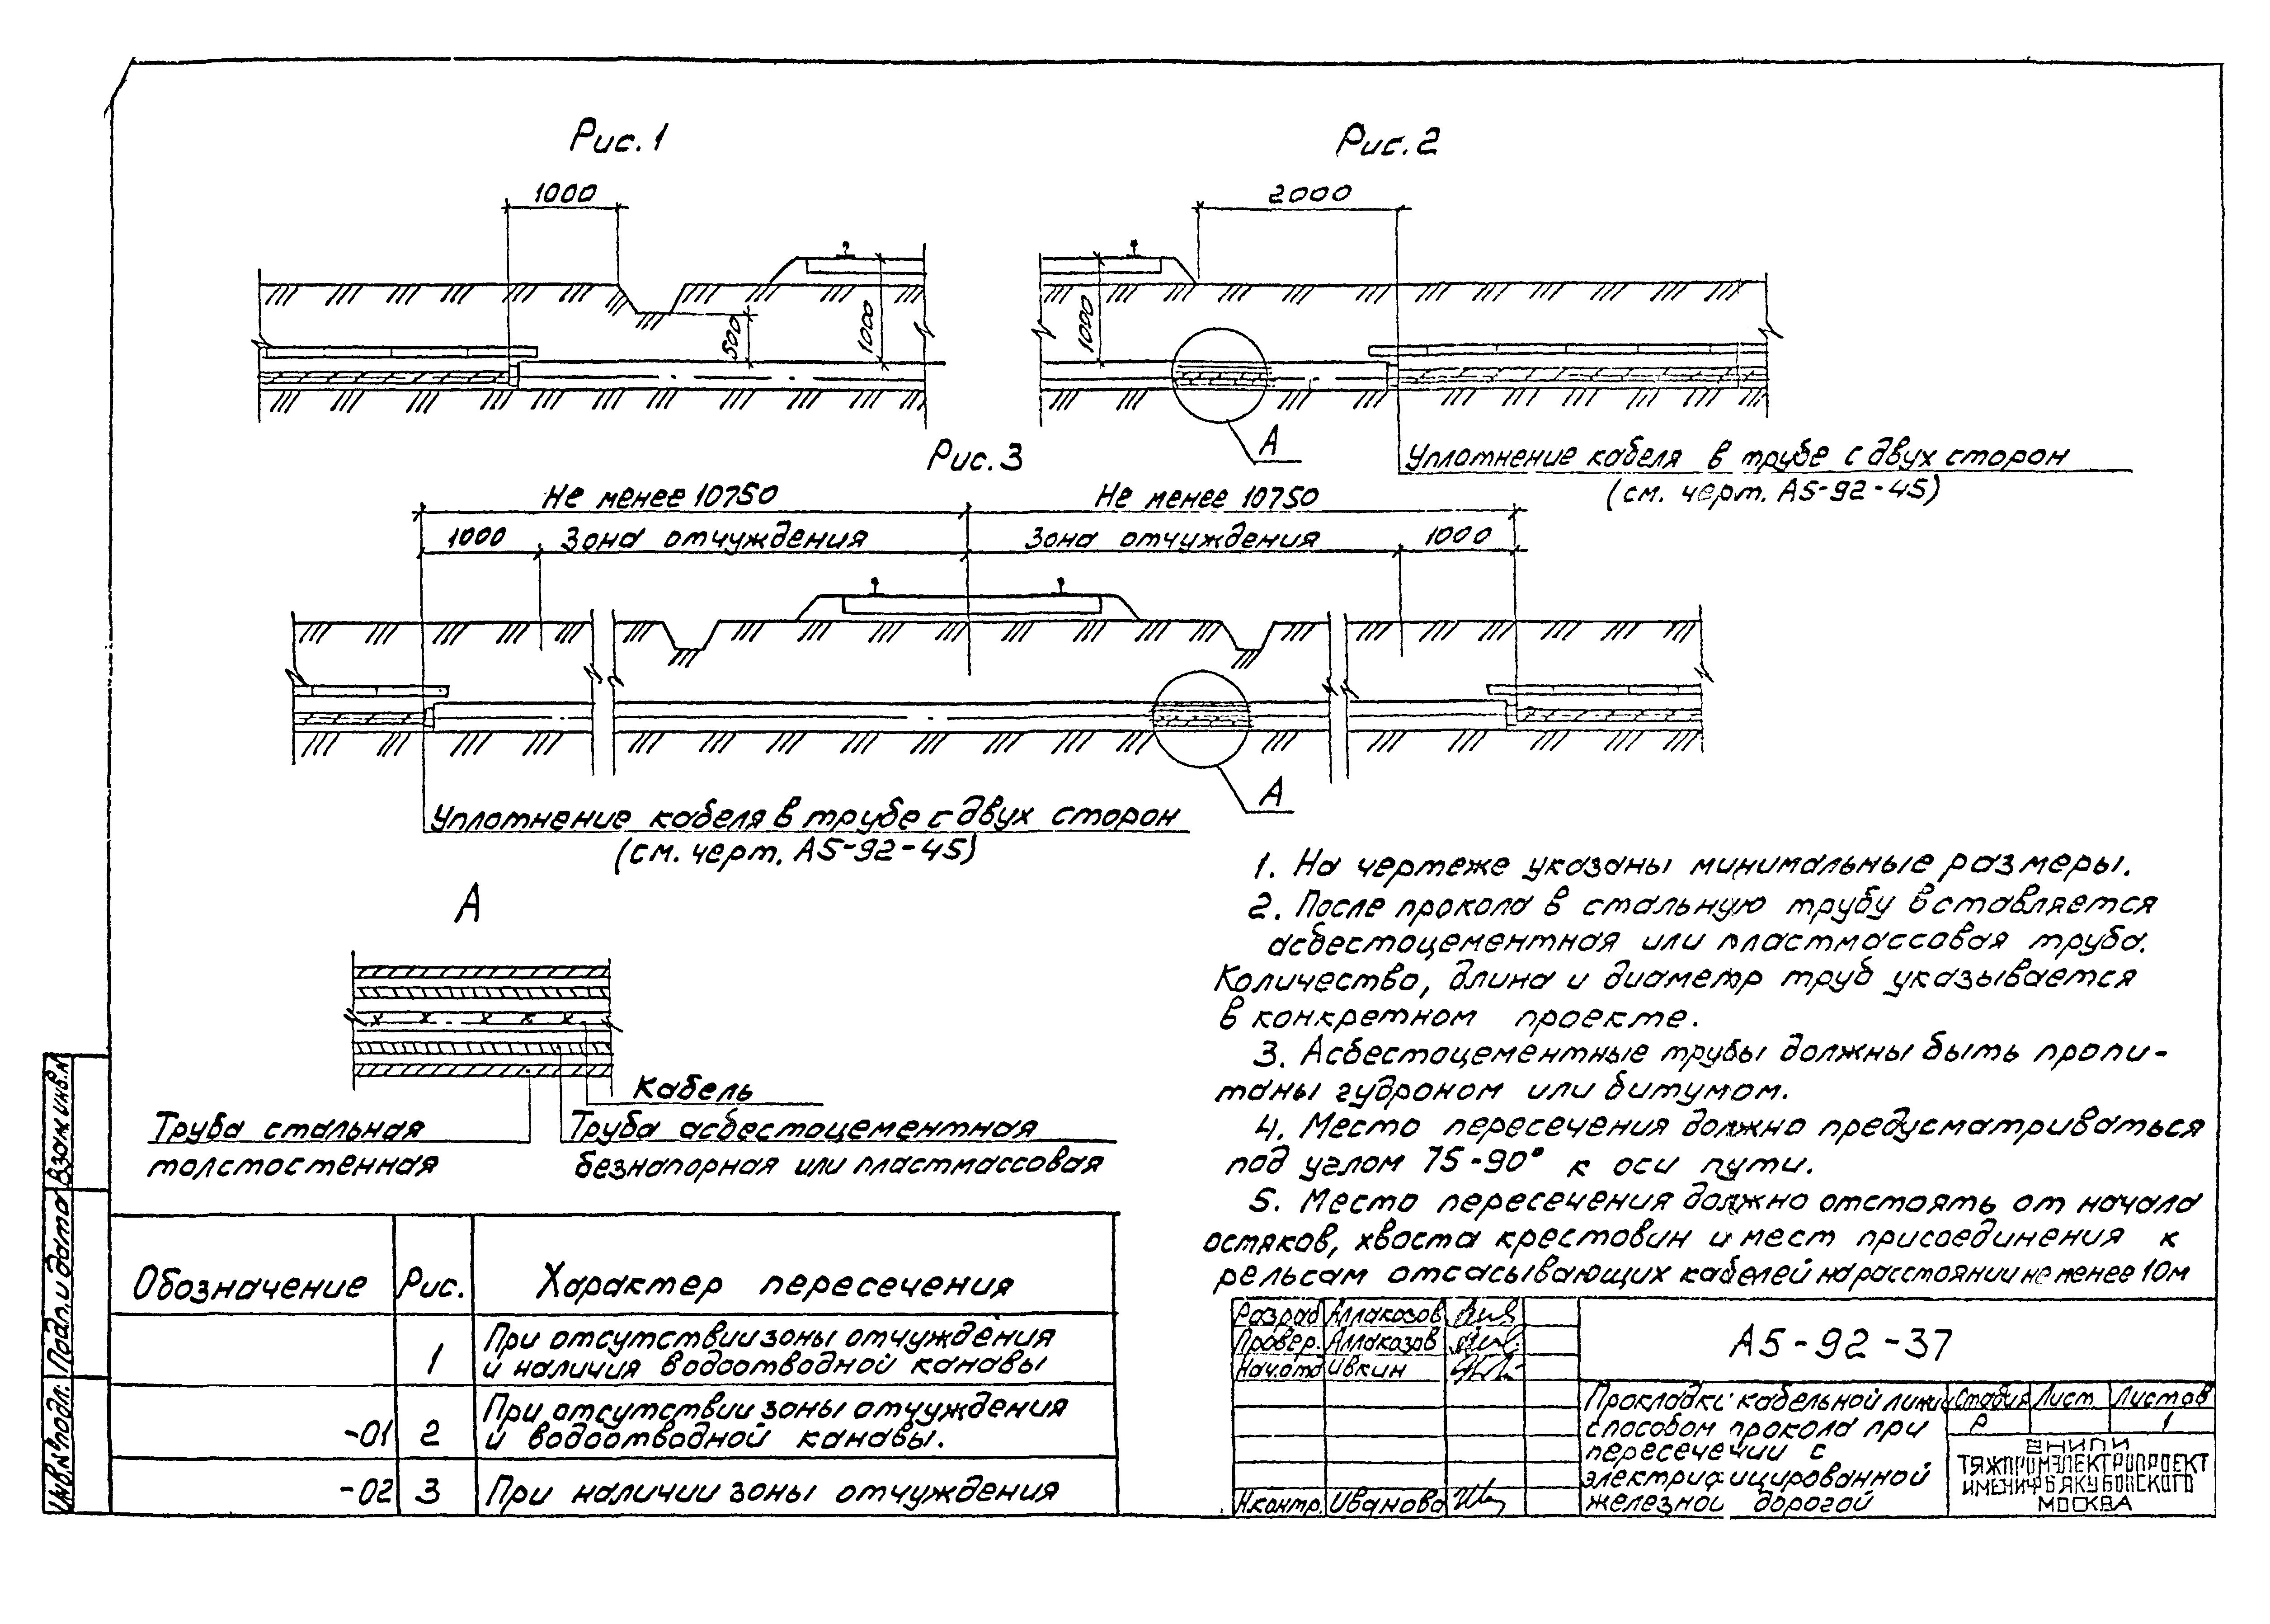 Рис. 1
Рис. 2
1000
2000
500
1000
1000
А
Уплотнение кабеля в трубе с двух сторон
(см. черт. А5-92-45)
Рис. 3
Не менее 10750
Не менее 10750
1000
Зона отчуждения
Зона отчуждения
1000
А
Уплотнение кабеля в трубе с двух сторон
(см. черт. А5-92-45)
А
Кабель
Труба стальная
толстостенная
Труба асбестоцементная
безнапорная или пластмассовая
1. На чертеже указаны минимальные размеры.
2. После прокола в стальную трубу вставляется
асбестоцементная или пластмассовая труба.
Количество, длина и диаметр труб указывается
в конкретном проекте.
3. Асбестоцементные трубы должны быть пропи-
таны гудроном или битумом.
4. Место пересечения должно предусматриваться
под углом 75-90° к оси пути.
5. Место пересечения должно отстоять от начала
остяков, хвоста крестовин и мест присоединения к
рельсам отсасывающих кабелей на расстоянии не менее 10м
Обозначение
Рис.
Характер пересечения
1
При отсутствии зоны отчуждения
и наличия водоотводной канавы
-01
2
При отсутствии зоны отчуждения
и водоотводной канавы.
-02
3
При наличии зоны отчуждения
Взам. инв. №
Подп. и дата
Инв. № подл.
Разраб Аллакозов
Провер. Аллакозов
Нач.отд Ивкин
Н.контр. Иванова
А5-92-37
Прокладка кабельной линии
способом прокола при
пересечении с
электрифицированной
железной дорогой
Стадия Лист Листов
Р 1
ВНИПИ
ТЯЖПРОМЭЛЕКТРОПРОЕКТ
ИМЕНИ Ф.Б.ЯКУБОВСКОГО
МОСКВА